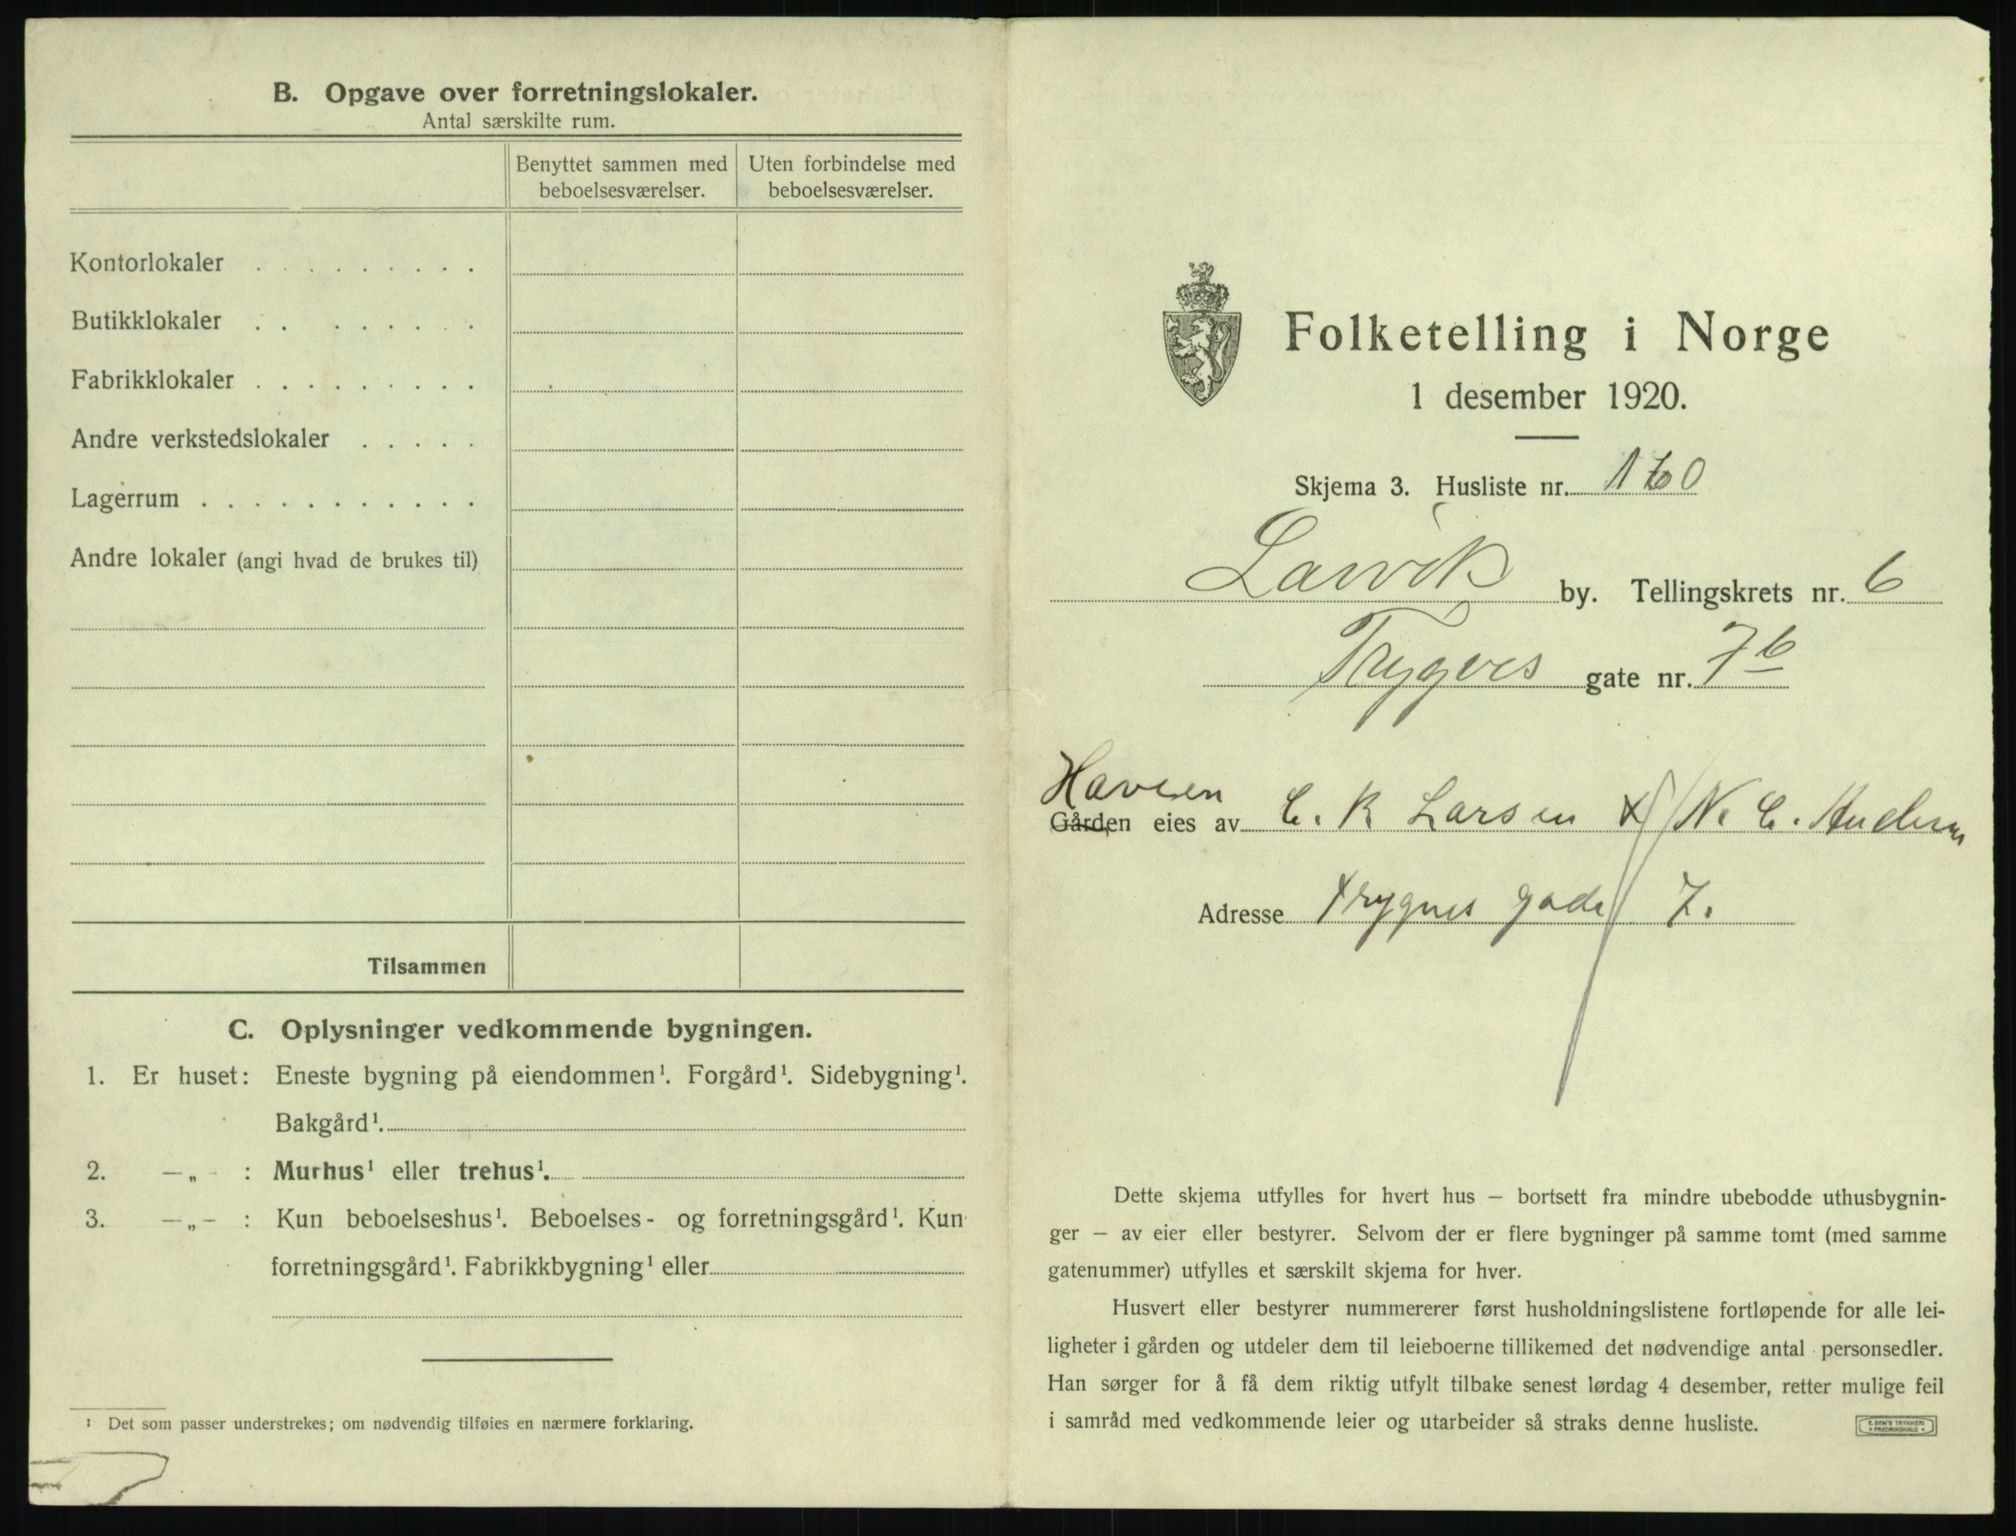 B. Opgave over forretningslokaler.
Antal særskilte rum.
Benyttet sammen med beboelsesværelser.
Uten forbindelse med beboelsesværelser.
Kontorlokaler . . . . . . . . .
Butikklokaler . . . . . . . .
Fabrikklokaler . . . . . . . . .
Andre verkstedslokaler . . . . .
Lagerrum . . . . . . . . . . .
Andre lokaler (angi hvad de brukes til)
Tilsammen
C. Oplysninger vedkommende bygningen.
1. Er huset: Eneste bygning på eiendommen¹. Forgård¹. Sidebygning¹.
Bakgård¹.
2. —„- : Murhus¹ eller trehus¹.
3. —„- : Kun beboelseshus¹. Beboelses- og forretningsgård¹. Kun
forretningsgård¹. Fabrikkbygning¹ eller
¹ Det som passer understrekes; om nødvendig tilføies en nærmere forklaring.
Folketelling i Norge
1 desember 1920.
Skjema 3. Husliste nr. 160
Larvik by. Tellingskrets nr. 6
Trygves gate nr. 7b
Haven
Gården eies av C. K Larsen & N. C. Andersen
Adresse Trygves gade 7.
Dette skjema utfylles for hvert hus — bortsett fra mindre ubebodde uthusbygnin-
ger — av eier eller bestyrer. Selvom der er flere bygninger på samme tomt (med samme
gatenummer) utfylles et særskilt skjema for hver.
Husvert eller bestyrer nummererer først husholdningslistene fortløpende for alle lei-
ligheter i gården og utdeler dem til leieboerne tillikemed det nødvendige antal personsedler.
Han sørger for å få dem riktig utfylt tilbake senest lørdag 4 desember, retter mulige feil
i samråd med vedkommende leier og utarbeider så straks denne husliste.